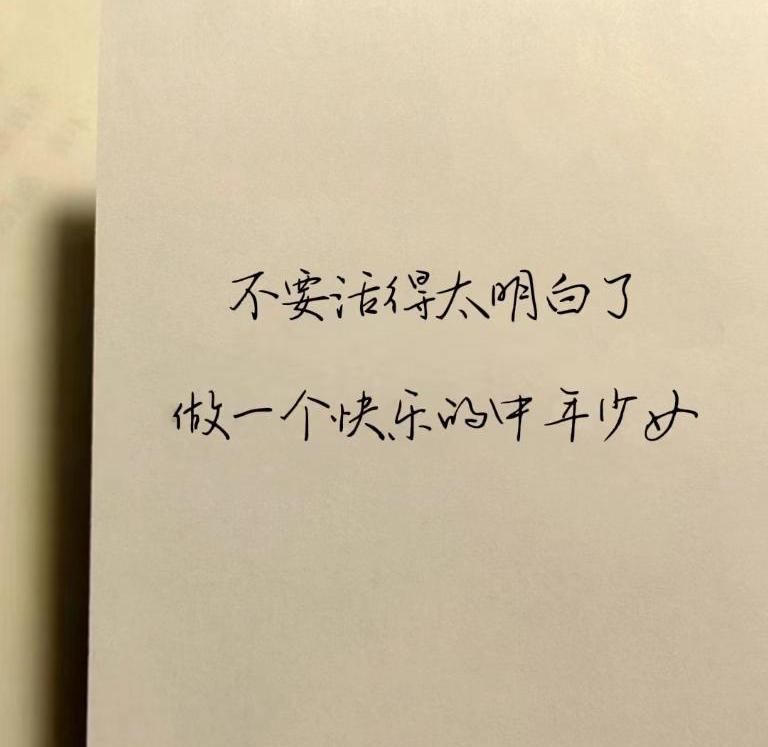 不要活得太明白了
做一个快乐的中年少女